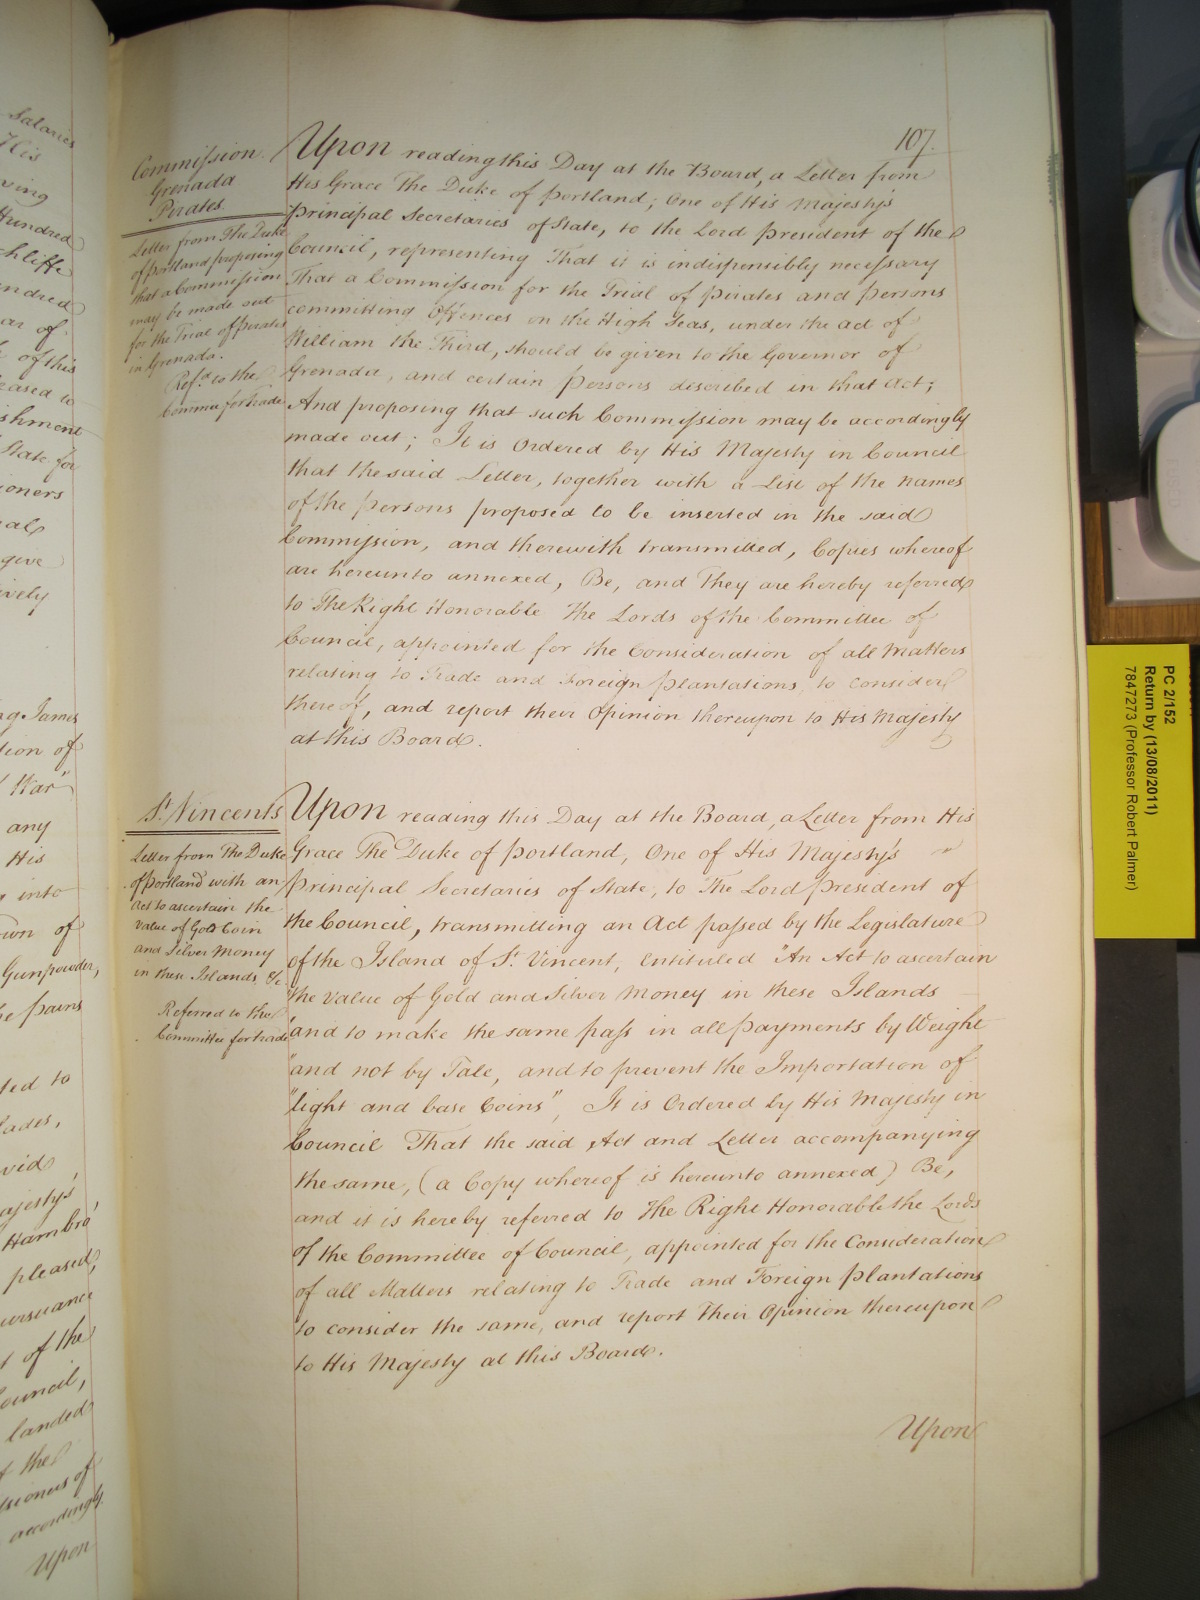 107.
Commission
Grenada
Pirates
Letter from The Duke
of Portland proposing
that a Commission
may be made out
for the Trial of Pirates
in Grenada.
Refd. to the
Commee for trade
Upon reading this Day at the Board, a Letter from
His Grace The Duke of Portland; One of His Majesty's
Principal Secretaries of State, to the Lord President of the
Council, representing That it is indispensibly necessary
That a Commission for the Trial of Pirates and Persons
committing Offences on the High Seas, under the act of
William the Third, should be given to the Governor of
Grenada, and certain Persons described in that Act;
And proposing that such Commission may be accordingly
made out; It is Ordered by His Majesty in Council
that the said Letter, together with a List of the names
of the Persons proposed to be inserted in the said
Commission, and therewith transmitted, Copies whereof
are hereunto annexed, Be, and They are hereby referred
to The Right Honorable The Lords of the Committee of
Council, appointed for the Consideration of all Matters
relating to Trade and Foreign Plantations, to consider
thereof, and report their Opinion thereupon to His Majesty
at this Board.
St. Vincents
Letter from The Duke
of Portland with an
Act to ascertain the
value of Gold Coin
and Silver Money
in these Islands, &c
Referred to the
Committee for trade
Upon reading this Day at the Board, a Letter from His
Grace The Duke of Portland, One of His Majesty's
Principal Secretaries of State, to The Lord President of
the Council, transmitting an Act passed by the Legislature
of the Island of St. Vincent, entituled "An Act to ascertain
"the value of Gold and Silver Money in these Islands
"and to make the same pass in all payments by Weight
"and not by Tale, and to prevent the Importation of
"light and base Coins", It is Ordered by His Majesty in
Council That the said Act and Letter accompanying
the same, (a Copy whereof is hereunto annexed) Be,
and it is hereby referred to The Right Honorable the Lords
of the Committee of Council, appointed for the Consideration
of all Matters relating to Trade and Foreign Plantations
to consider the same, and report Their Opinion thereupon
to His Majesty at this Board.
Upon
Salaries
His
Hundred
of this
State for
give
James
War"
any
His
into
Gunpowder,
pains
to
Hambro'
pleased,
of the
Council,
landed
the
of
accordingly.
Upon
PC 2/152
Return by (13/08/2011)
7847273 (Professor Robert Palmer)